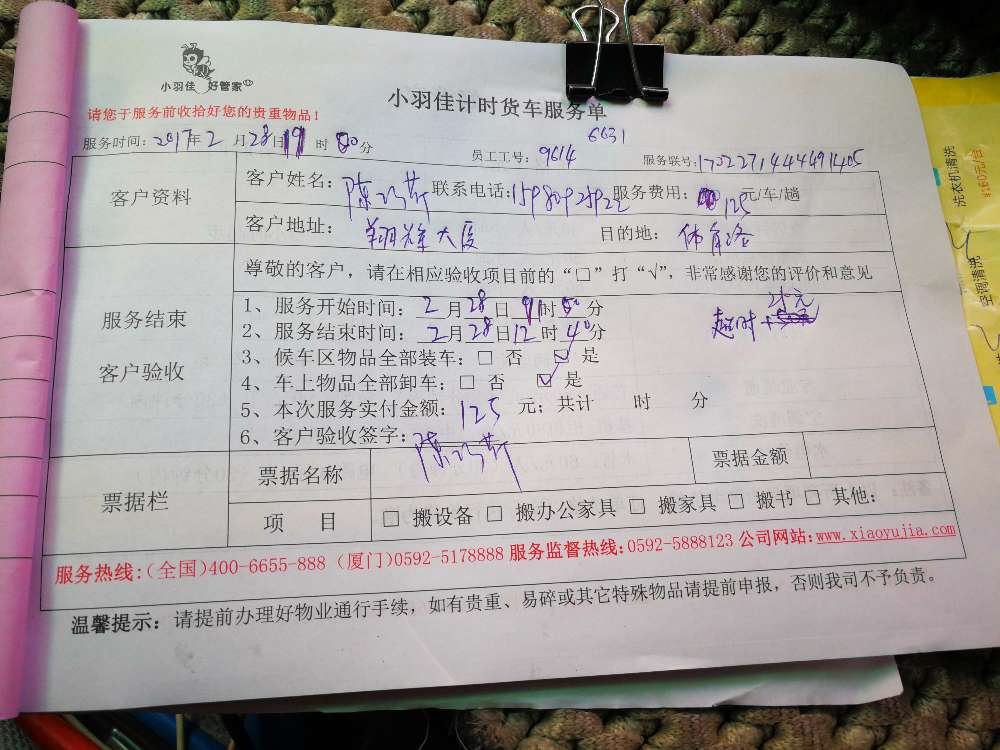 小羽佳 好管家
小羽佳计时货车服务单
请您于服务前收拾好您的贵重物品！
6631
服务时间：2017年2月28日 时 分 员工工号：9614 服务联号：1702271444491405
客户资料
客户姓名：陈 联系电话： 服务费用：125元/车/趟
客户地址：翔辉大厦 目的地：体育路
尊敬的客户，请在相应验收项目前的“□”打“√”，非常感谢您的评价和意见
服务结束
客户验收
1、服务开始时间：2月28日 时 分
超时+
2、服务结束时间：2月28日12时40分
3、候车区物品全部装车：□ 否 ☑ 是
4、车上物品全部卸车：□ 否 ☑ 是
5、本次服务实付金额：125 元；共计 时 分
6、客户验收签字：陈
票据栏
票据名称 票据金额
项 目 □ 搬设备 □ 搬办公家具 □ 搬家具 □ 搬书 □ 其他：
服务热线：（全国）400-6655-888（厦门）0592-5178888 服务监督热线：0592-5888123 公司网站：www.xiaoyujia.com
温馨提示：请提前办理好物业通行手续，如有贵重、易碎或其它特殊物品请提前申报，否则我司不予负责。
洗衣机清洗
空调清洗